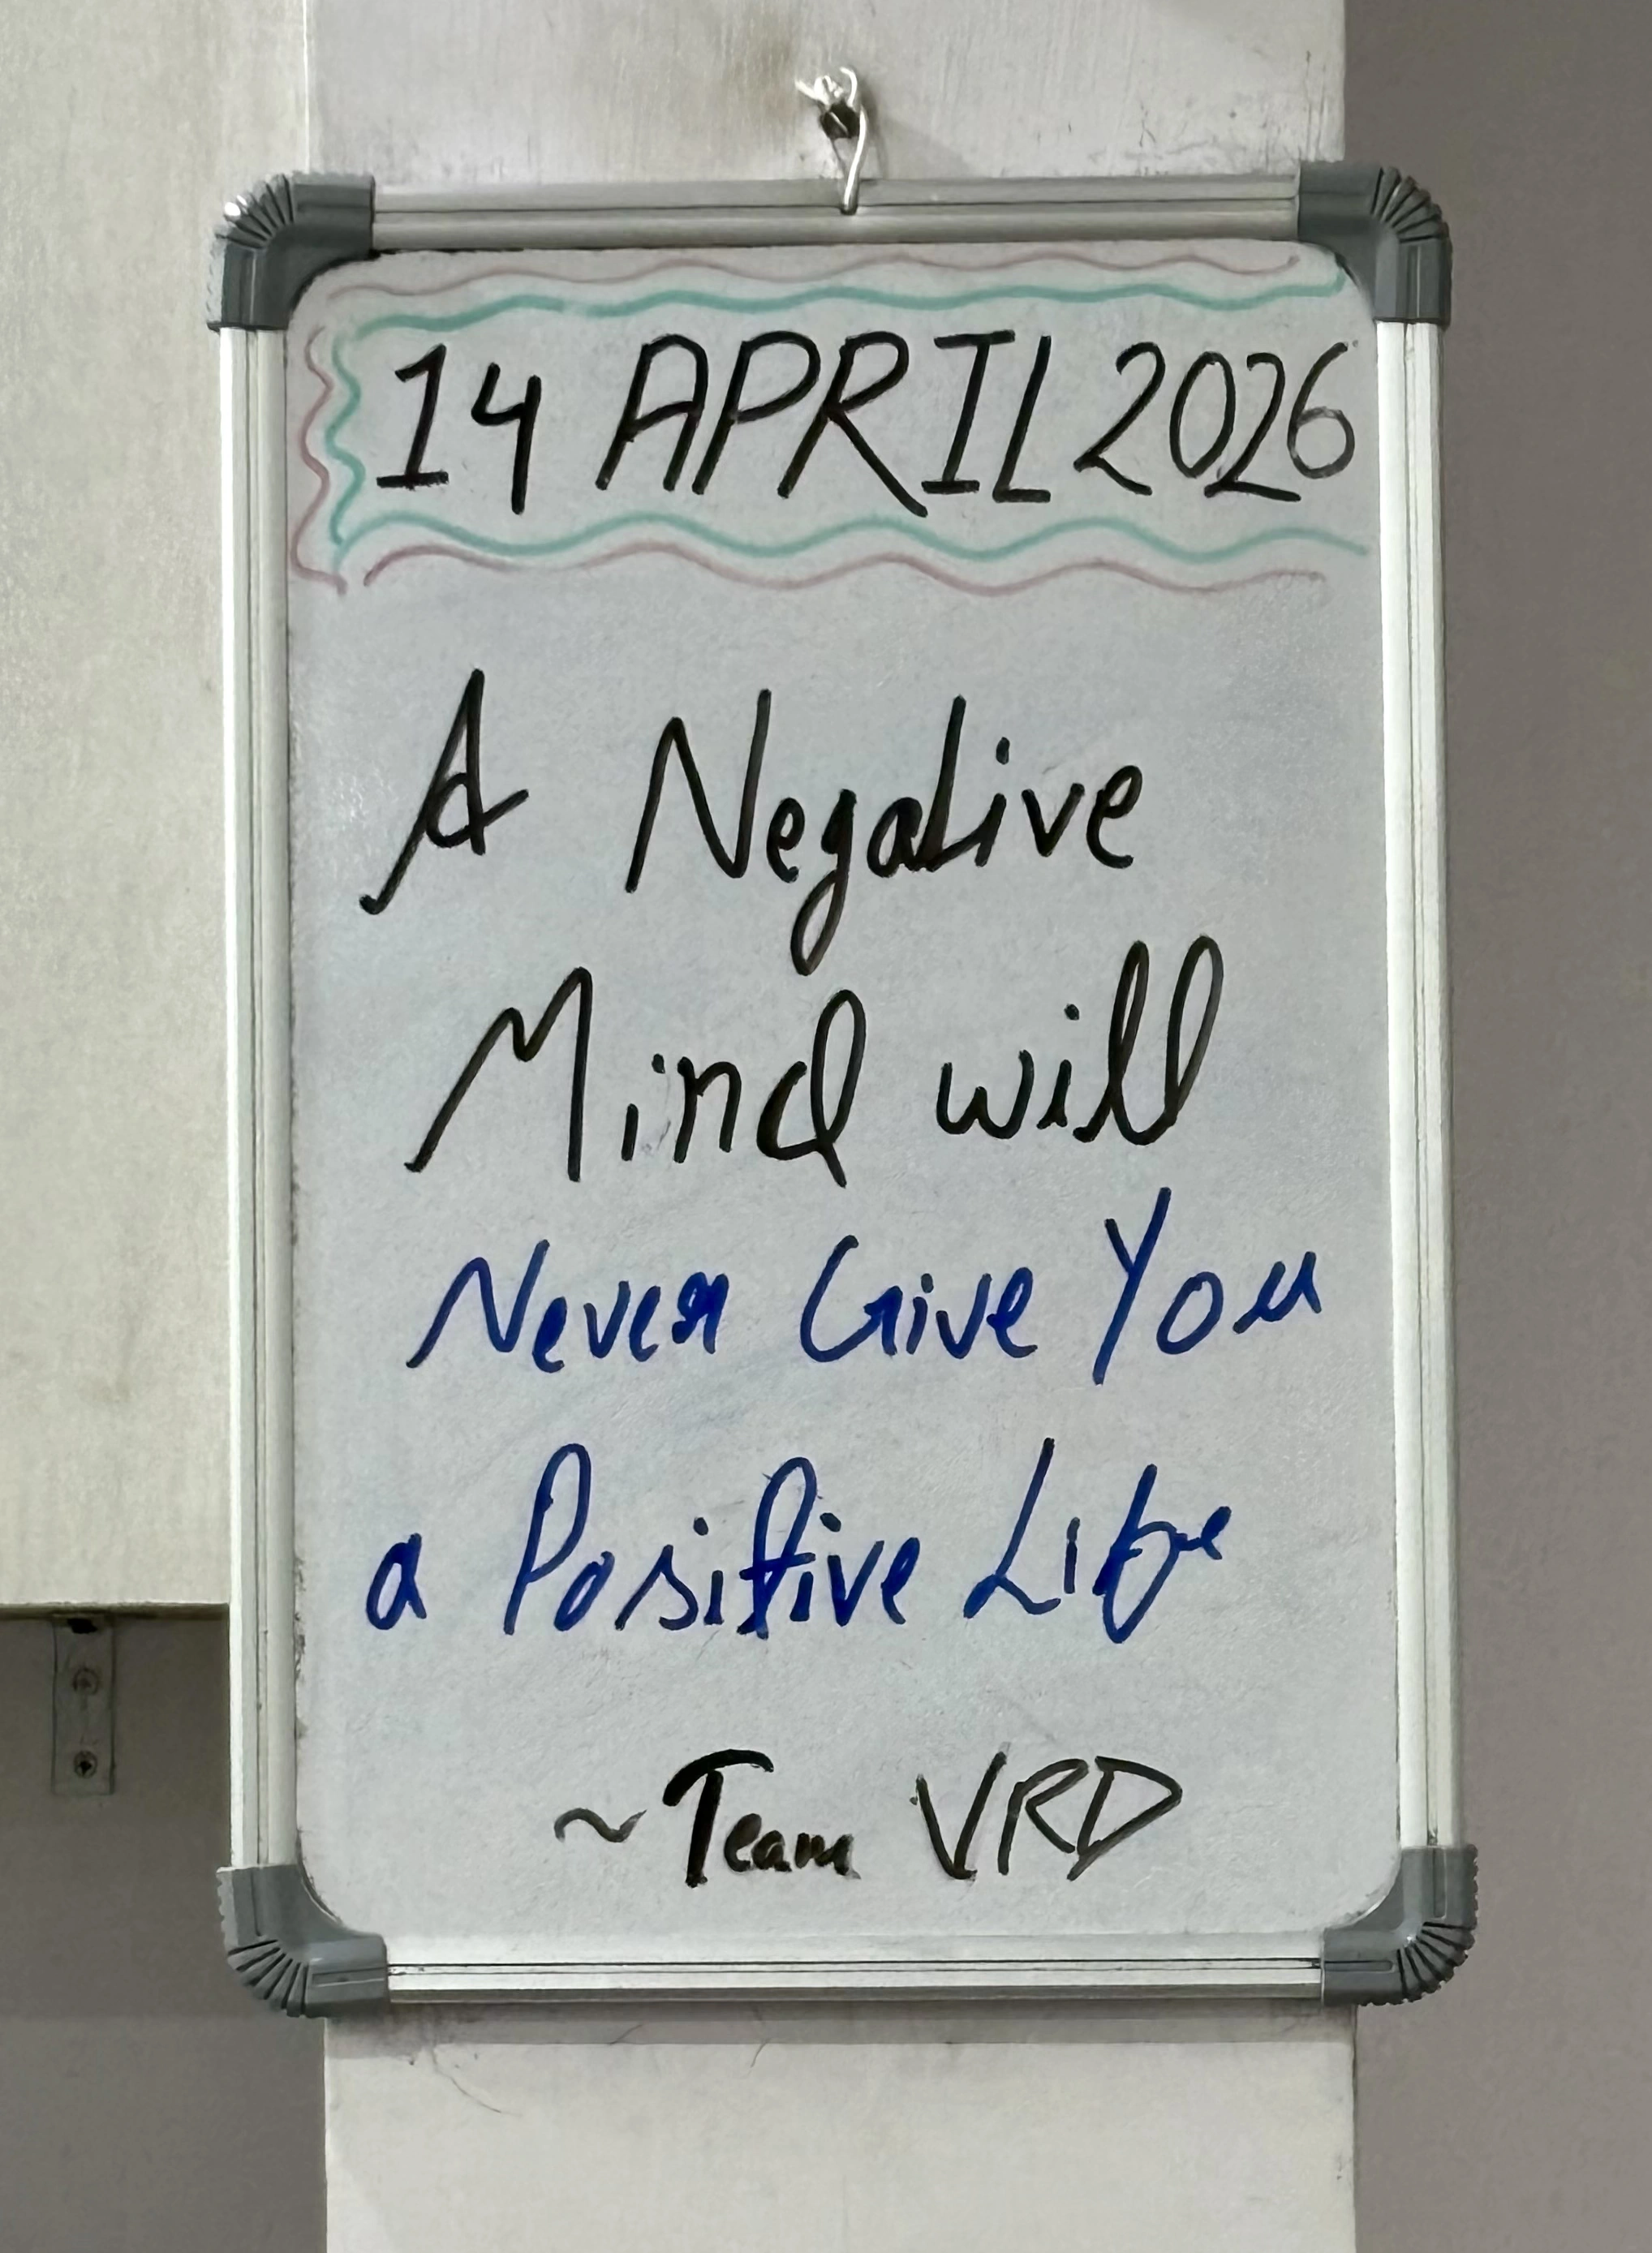 14 APRIL 2026
A Negative
Mind will
Never Give You
a Positive Life
~Team VRD